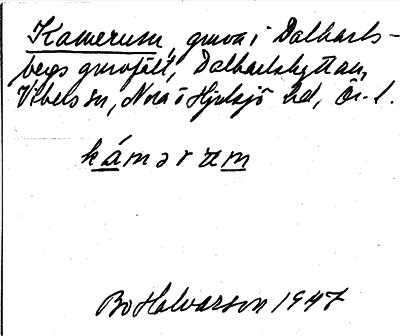 Kamerum, gruva i Dalkarls-
bergs gruvfält, Dalkarlshyttan,
Vikers sn, Nora o Hjulsjö hd, Ör. l.
kámərum
Bo Halvarson 1947